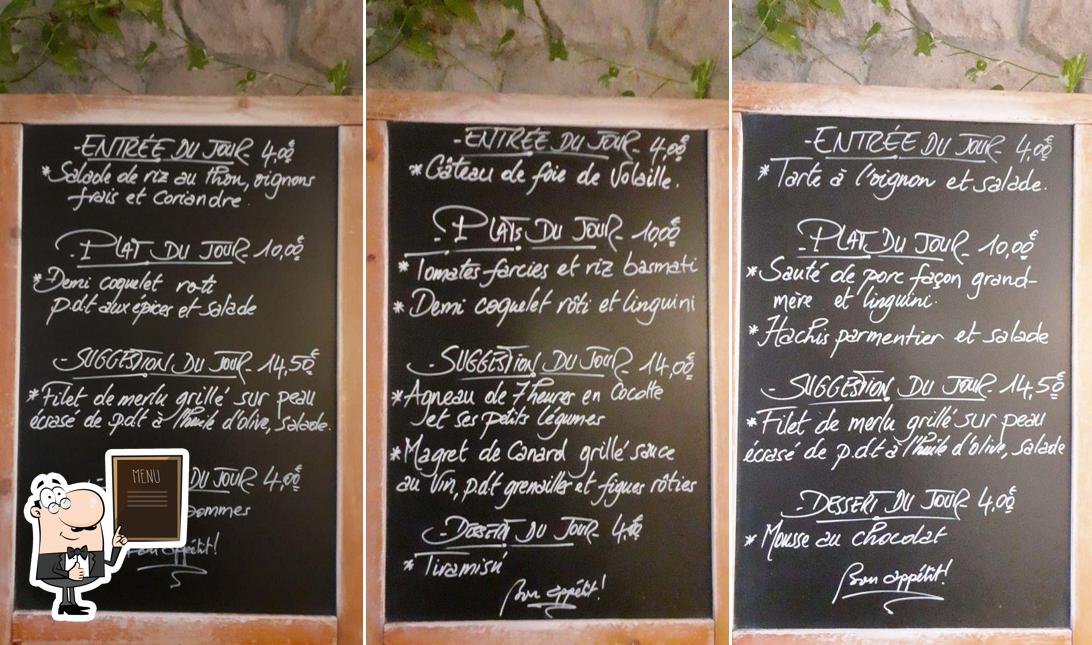 -ENTRÉE DU JOUR- 4,00€
*Salade de riz au thon, oignons
frais et Coriandre.
-PLAT DU JOUR- 10,00€
*Demi coquelet roti
p.d.t aux épices et salade
-SUGGESTION DU JOUR- 14,50€
*Filet de merlu grillé sur peau
écrasé de p.d.t à l'huile d'olive, salade.
DU JOUR- 4,00€
pommes
Bon appétit!
MENU
-ENTRÉE DU JOUR- 4,00€
*Gâteau de foie de Volaille.
-PLATS DU JOUR- 10,00€
*Tomates farcies et riz basmati
*Demi coquelet rôti et linguini
-SUGGESTION DU JOUR- 14,00€
*Agneau de 7 heures en Cocotte
et ses petits légumes
*Magret de Canard grillé sauce
au Vin, p.d.t grenailles et figues rôties
-DESSERT DU JOUR- 4,00€
*Tiramisu
Bon appétit!
-ENTRÉE DU JOUR- 4,00€
*Tarte à l'oignon et salade.
-PLAT DU JOUR- 10,00€
*Sauté de porc façon grand-
mère et linguini.
*Hachis parmentier et salade
-SUGGESTION DU JOUR- 14,50€
*Filet de merlu grillé sur peau
écrasé de p.d.t à l'huile d'olive, salade
-DESSERT DU JOUR- 4,00€
*Mousse au chocolat
Bon appétit!